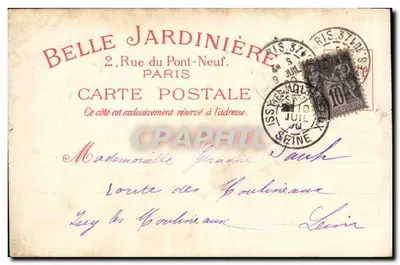 BELLE JARDINIÈRE
2, Rue du Pont-Neuf.
PARIS
CARTE POSTALE
Ce côté est exclusivement réservé à l'adresse.
PARIS. 37
JUIL
10
ISSY
10
JUIL
SEINE
CPAPHIL
Mademoiselle Germaine
route des Moulineaux
Issy les Moulineaux
Seine